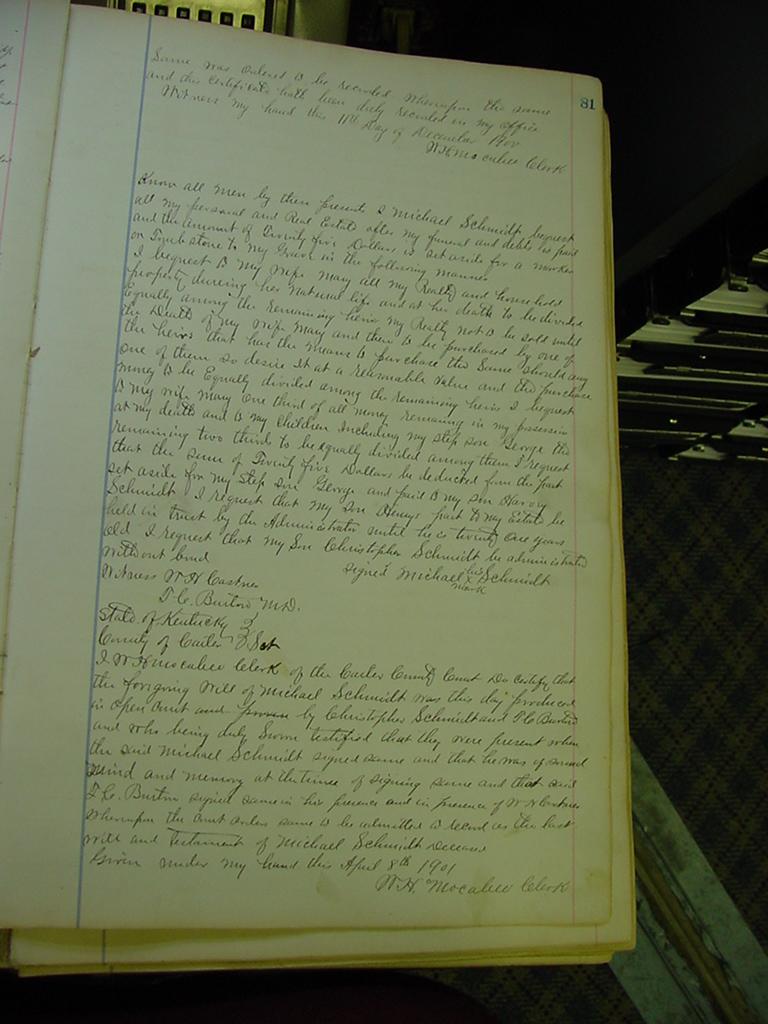 81
Same was ordered to be recorded whereupon the same
and this certificate hath been duly recorded in my office
Witness my hand this 11th Day of December 1900
W H Mocabee Clerk
Know all men by these presents I Michael Schmidt bequest
all my personal and Real Estate after my funeral and debts is paid
and the amount of Twenty five Dollars is set aside for a marker
or Tombstone to my Grave in the following manner
I bequest to my wife Mary all my Realty and household
property dureing her natural life and at her death to be divided
Equally among the remaining heirs my Realty not to be sold until
the Death of my wife Mary and then to be purchased by one of
the heirs that has the means to purchase the same should any
one of them so desire it at a reasonable value and the purchase
money to be Equally divided among the remaining heirs I bequest
to my wife Mary one third of all money remaining in my possession
at my death and to my Children Including my step son George the
remaining two third to be equally divided among them I request
that the sum of Twenty five Dollars be deducted from the part
set aside for my Step son George and paid to my son Harvy
Schmidt I request that my son Henrys part to my Estate be
held in trust by the Administrator until he is twenty one years
old I request that my Son Christopher Schmidt be administrated
without bond
signed Michael his x mark Schmidt
Witness W H Castner
T. C. Burton M.D.
State of Kentucky
County of Carter Sct
I W H Mocabee Clerk of the Carter County Court Do certify that
the forgoing Will of Michael Schmidt was this day produced
in open court and proven by Christopher Schmidt and T C Burton
and who being duly Sworn testified that they were present when
the said Michael Schmidt signed same and that he was of sound
mind and memory at the time of signing same and that said
T. C. Burton signed same in his presence and in presence of W H Castner
whereupon the court orders same to be admitted to record as the last
will and testament of Michael Schmidt deceased
Given under my hand this April 8th 1901
W.H. Mocabee Clerk